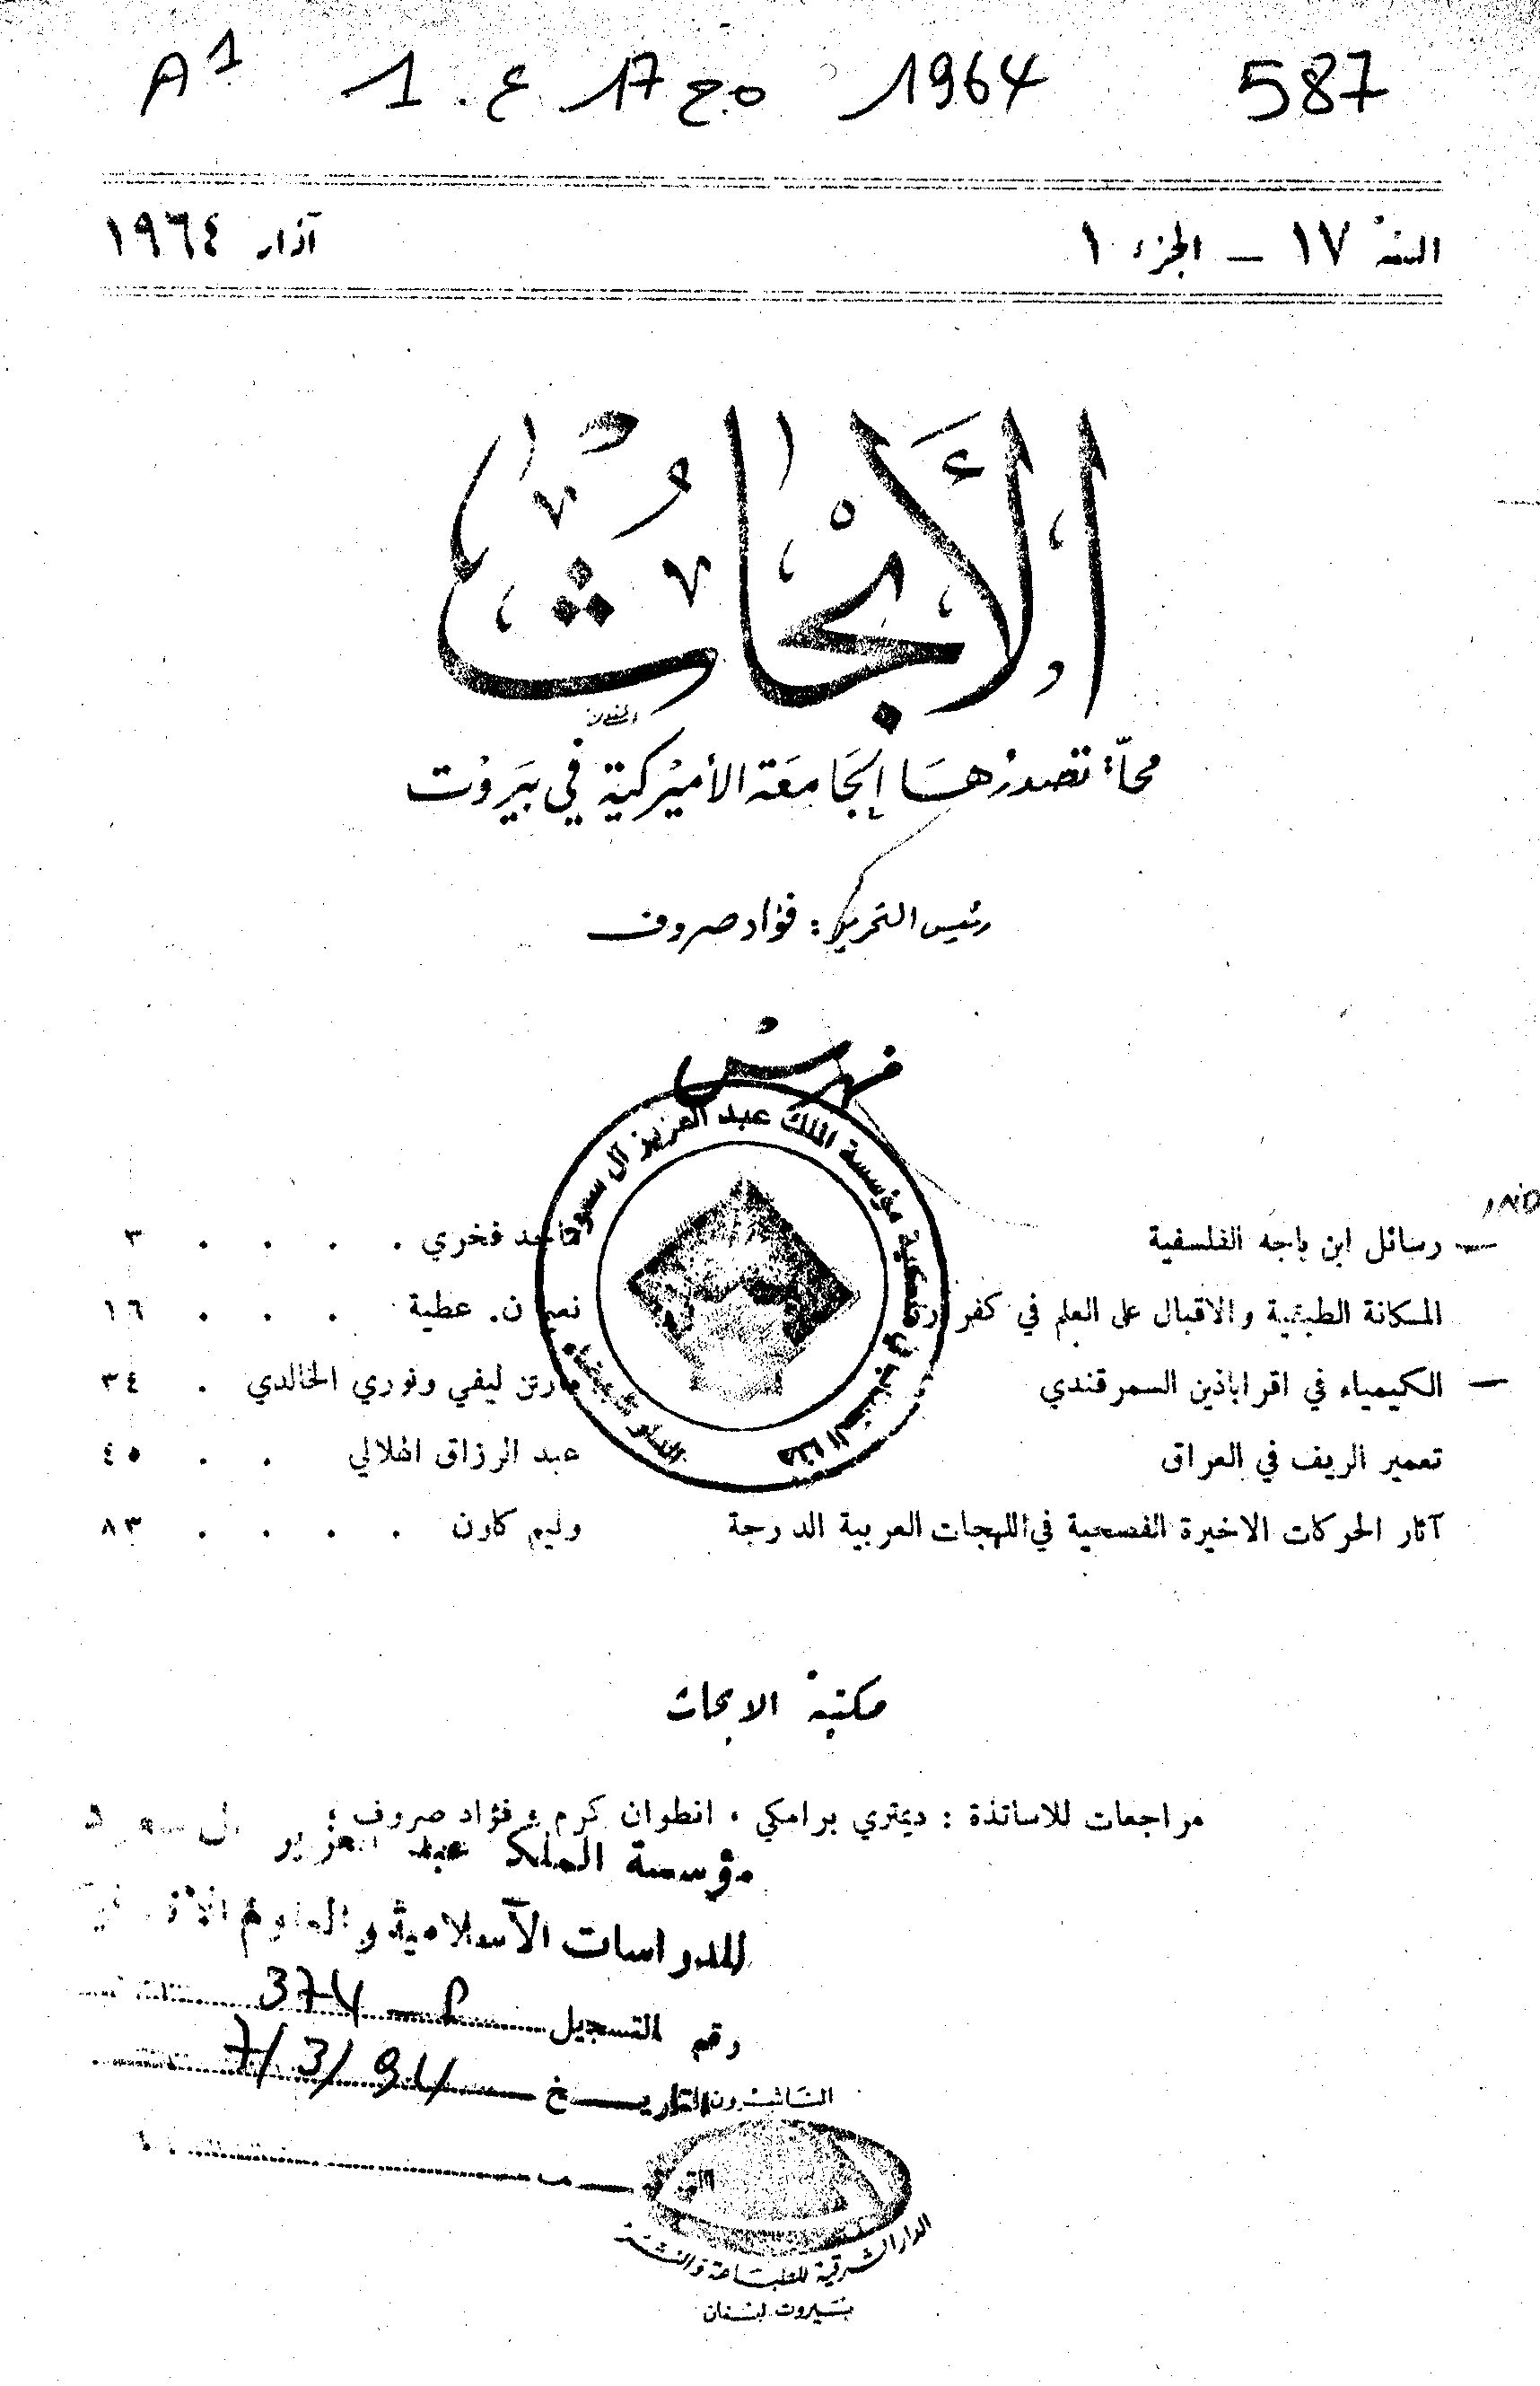 A1 1 ع. 17 مج 1964 587
السنة ١٧ — الجزء ١ آذار ١٩٦٤
الأَبْحَاثُ
مجلّة تصدرها الجَامِعَة الأميْركيّة في بَيْرُوْت
رئيس التحرير: فؤاد صروف
فهرس
رسائل ابن باجه الفلسفية ماجد فخري . . . . ٣
المكانة الطبقية والاقبال على العلم في كفر نعمان. عطية . . . ١٦
الكيمياء في اقراباذين السمرقندي مارتن ليفي ونوري الخالدي . ٣٤
تعمير الريف في العراق عبد الرزاق الهلالي . . ٤٥
آثار الحركات الاخيرة الفصحية في اللهجات العربية الدارجة وليم كاون . . . . ٨٣
مكتبة الملك عبد العزيز آل سعود
الدار البيضاء
مكتبة الابحاث
مراجعات للاساتذة : ديمتري برامكي ، انطوان كرم وفؤاد صروف
مؤسسة الملك عبد العزيز آل سعود
للدراسات الاسلامية والعلوم الانسانية
رقم التسجيل 374 م
التاريخ 7/3/91
الناشرون
الدار الشرقية للطباعة والنشر
بيروت لبنان